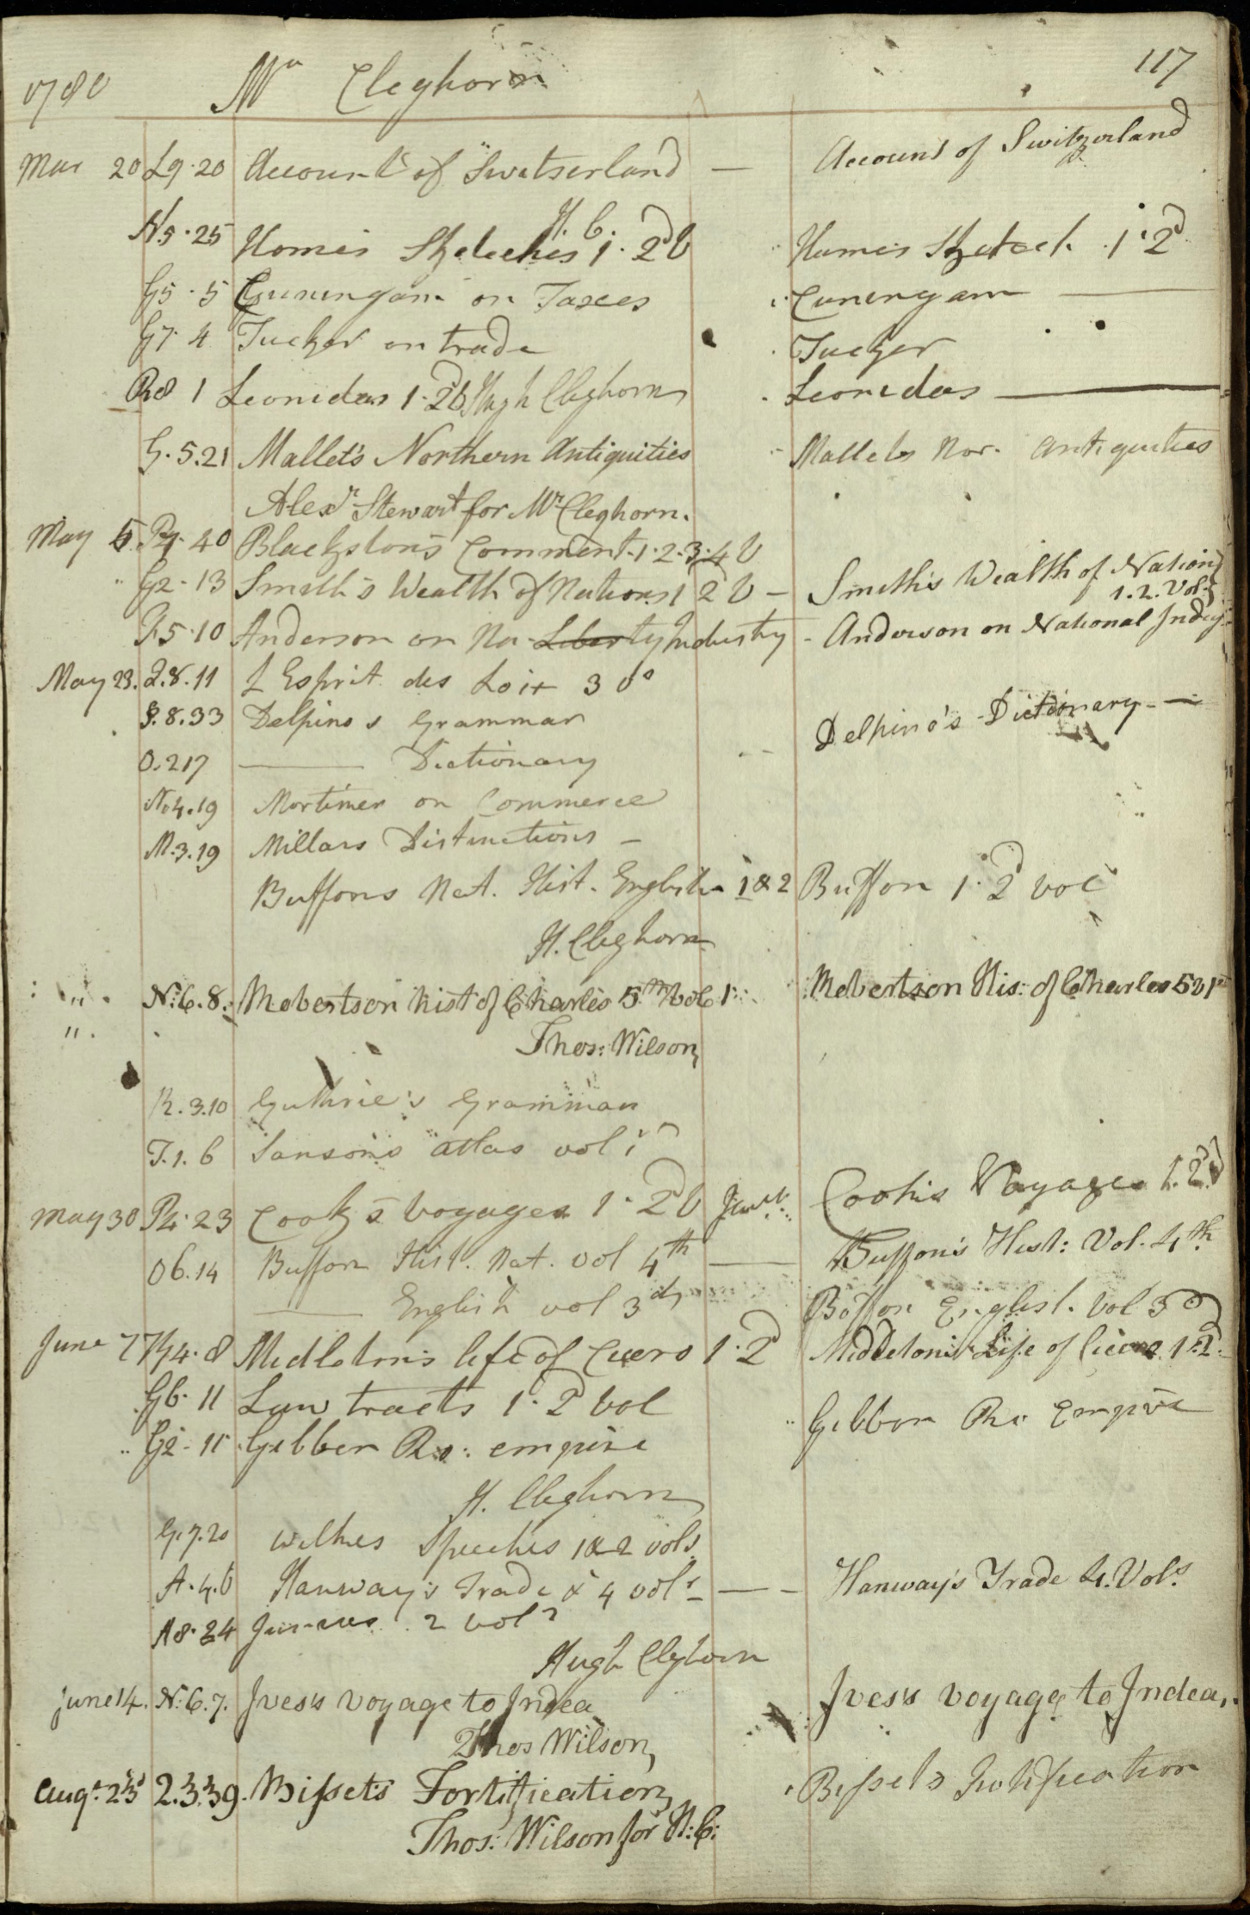 1780 Mr Cleghorn 117
Mar 20 L9.20 Account of Switserland — Account of Switzerland
H. C.
N5.25 Homes Sketches 1.2d V Humes Sketch 1.2d
G5.5 Cuningam on Taxes Cunengam —
G7.4 Tucker on trade Tucker
R8 1 Leonidas 1.2d Hugh Cleghorn Leonidas —
G.5.21 Mallet's Northern Antiquities Mallets Nor. Antiquities
Alexr Stewart for Mr Cleghorn.
May 5 P4.40 Blackston's Comment. 1.2.3.4 V
" G2.13 Smith's Wealth of Nations 1 2 V — Smith's Wealth of Nations
1.2. Vols
R5.10 Anderson on Na Liberty Industry - Anderson on National Indy
May 23. Q.8.11 L Esprit des Loix 3 vs
S.8.33 Delpino s Grammar
Delpino's Dictionary —
O.217 —— Dictionary
N.4.19 Mortimer on Commerce
M.3.19 Millars Distinctions —
Buffons Nat. Hist. English 1 & 2 Buffon 1.2 vol
H. Cleghorn
" N:6.8. Robertson hist of Charles 5th Vol 1: Robertson His: of Charles 5 v 1
". Thos: Wilson
R.3.10 Guthrie's Grammar
T.1.6 Sanson's atlas vol 1
May 30 P4.23 Cook's voyages 1.2d V Cook's Voyages 1.2d
O6.14 Buffon Hist. Nat. vol 4th —— Buffon's Hist: Vol. 4th
—— English vol 3d Buffon English. Vol 3d
June 7 4.8 Midletons life of Cicero 1.2 Middleton's Life of Cicero 1.2.
G6.11 Law tracts 1.2 Vol
" G2.11 Gibbon Ro: empire Gibbon Ro empire
H. Cleghorn
G.7.20 Wilkes Speeches 1 & 2 vols
A.4.6 Hanway's Trade & 4 vols —— Hanway's Trade 4. Vols
A8.24 Junius 2 vols
Hugh Cleghorn
june 14. N:6.7. Ives's voyage to Indea Ives's voyage to Indea,
Thos Wilson,
Augt 23d 2.3.39. Bisset's Fortification, Bissets Fortification
Thos: Wilson for H:C: